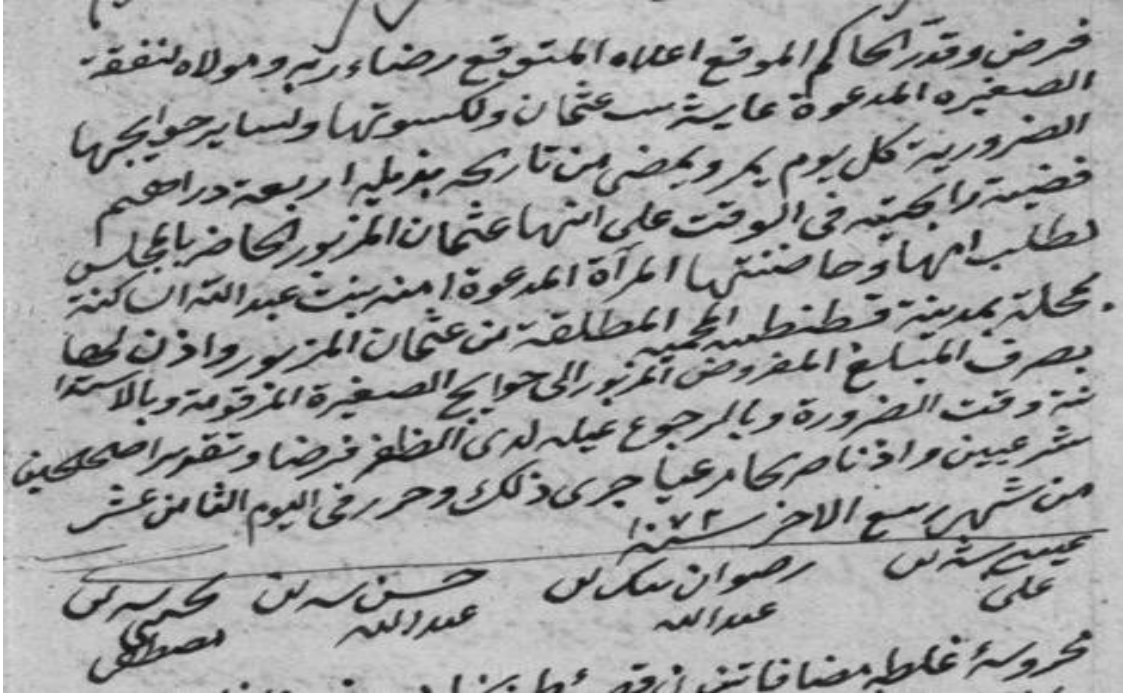 فرض وقدر الحاكم الموقع اعلاه المتوقع رضاء ربه ومولاه لنفقة
الصغيره المدعوة عايشه بنت عثمان ولكسوتها ولساير حوايجها
الضرورية كل يوم يمر ويمضي من تاريخه بذيله اربعة دراهم
فضية رايجة في الوقت على ابيها عثمان المزبور الحاضر بالمجلس
بطلب امها وحاضنتها المرآة المدعوة امنه بنت عبد الله الساكنة
بمحلة بمدينة قسطنطينيه المحميه المطلقة من عثمان المزبور واذن لها
بصرف المبلغ المفروض المزبور الى حوايج الصغيرة المرقومة وبالاستدا
نة وقت الضرورة وبالرجوع عليه لدى الظفر فرضا وتقديرا صحيحين
شرعيين واذنا صريحا مرعيا جرى ذلك وحرر في اليوم الثامن عشر
من شهر ربيع الاخر سنة ١٠٧٢
رضوان بك بن عبد الله
حسن بشه بن عبد الله
بشه بن مصطفى
بشه بن علي
محروسهٔ غلطه مضافاتندن